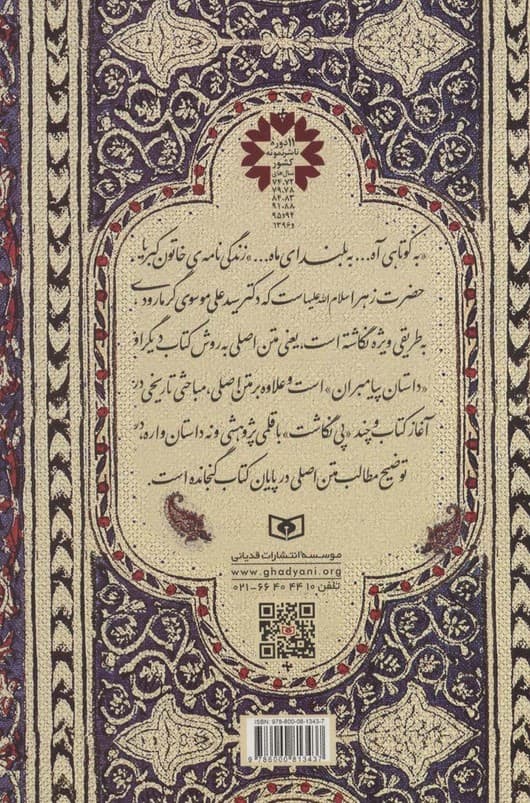 ۱۱ دوره
ناشر نمونه
کشور
سال‌های
۷۴،۷۲
۷۹،۷۸
۸۴،۸۳
۹۱،۸۸
۹۴و۹۵
و۱۳۹۶
«به کوتاهی آه... به بلندای ماه...» زندگی نامه‌ی خاتون کبریا،
حضرت زهرا سلام الله علیها است که دکتر سید علی موسوی گرمارودی،
به طریقی ویژه نگاشته است، یعنی متن اصلی به روش کتاب دیگر او
«داستان پیامبران» است و علاوه بر متن اصلی، مباحثی تاریخی در
آغاز کتاب و چند «پی نگاشت» با قلمی پژوهشی و نه داستان واره، در
توضیح مطالب متن اصلی در پایان کتاب گنجانده است.
موسسه انتشارات قدیانی
www.ghadyani.org
تلفن ۱۰ ۴۴ ۴۰ ۶۶-۰۲۱
ISBN: 978-600-08-1343-7
9 786000 813437